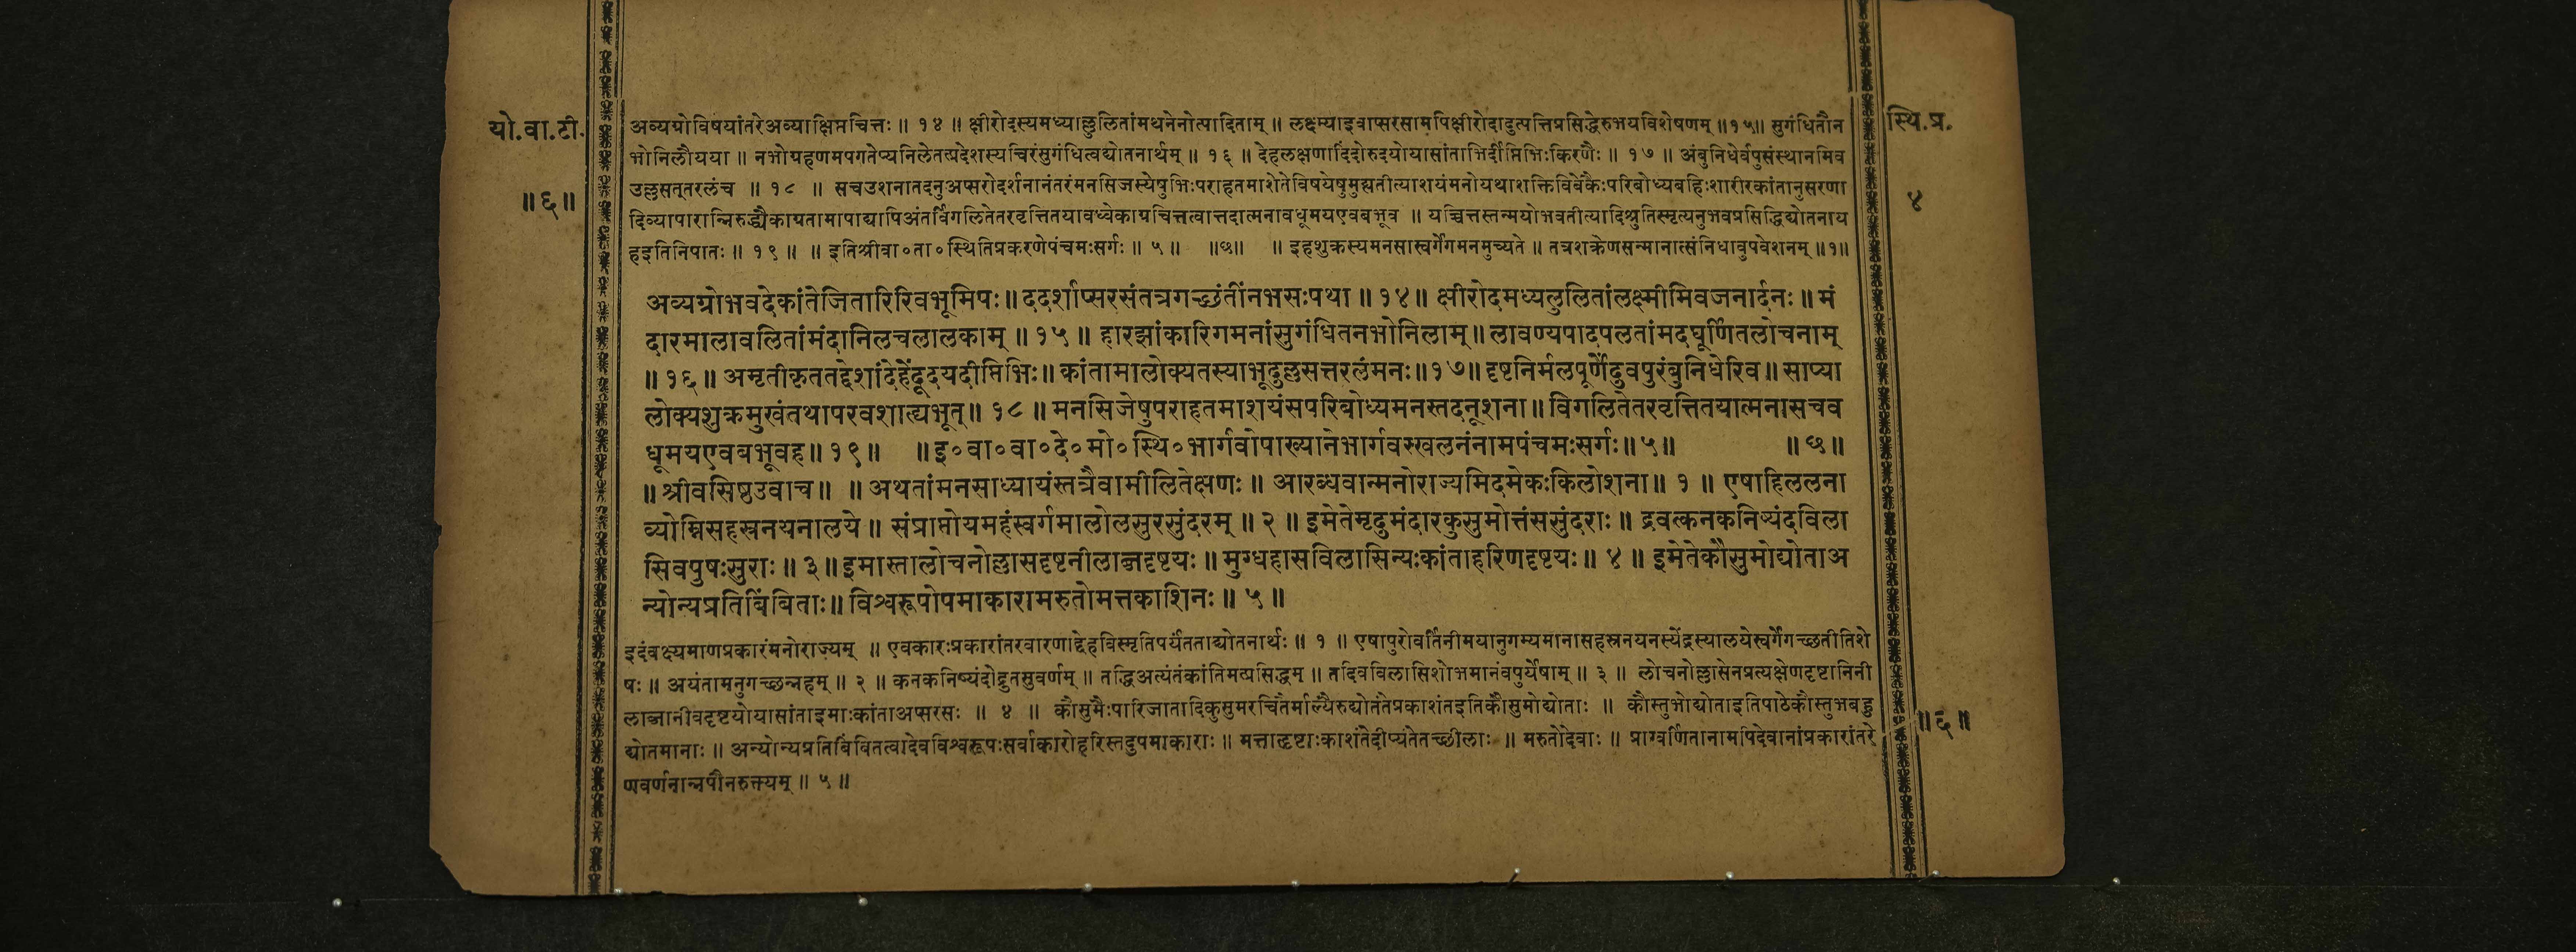 यो.वा.टी.
॥६॥
स्थि.प्र.
४
अव्यग्रोविषयांतरेअव्याक्षिप्तचित्तः ॥ १४ ॥ क्षीरोदस्यमध्याल्लुलितांमथनेनोत्पादिताम् ॥ लक्ष्म्याइवाप्सरसामपिक्षीरोदादुत्पत्तिप्रसिद्धेरुभयविशेषणम् ॥१५॥ सुगंधितौन
भोनिलौयया ॥ नभोग्रहणमपगतेप्यनिलेतत्प्रदेशस्यचिरंसुगंधित्वद्योतनार्थम् ॥ १६ ॥ देहलक्षणादिंदोरुदयोयासांताभिर्दीप्तिभिःकिरणैः ॥ १७ ॥ अंबुनिधेर्वपुसंस्थानमिव
उल्लसत्तरलंच ॥ १८ ॥ सचउशनातदनुअप्सरोदर्शनानंतरंमनसिजस्येषुभिःपराहतमाशेतेविषयेषुमुह्यतीत्याशयंमनोयथाशक्तिविवेकैःपरिबोध्यबहिःशारीरकांतानुसरणा
दिव्यापारान्निरुद्ध्यैकाग्रतामापाद्यापिअंतर्विगलितेतरवृत्तितयावध्वेकाग्रचित्तत्वात्तदात्मनावधूमयएवबभूव ॥ यच्चित्तस्तन्मयोभवतीत्यादिश्रुतिस्मृत्यनुभवप्रसिद्धिद्योतनाय
हइतिनिपातः ॥ १९ ॥ ॥ इतिश्रीवा०ता०स्थितिप्रकरणेपंचमःसर्गः ॥ ५ ॥ ॥छ॥ ॥ इहशुक्रस्यमनसास्वर्गेगमनमुच्यते ॥ तत्रशक्रेणसन्मानात्संनिधावुपवेशनम् ॥१॥
अव्यग्रोभवदेकांतेजितारिरिवभूमिपः ॥ ददर्शाप्सरसंतत्रगच्छंतींनभसःपथा ॥ १४ ॥ क्षीरोदमध्यलुलितांलक्ष्मीमिवजनार्दनः ॥ मं
दारमालावलितांमंदानिलचलालकाम् ॥ १५ ॥ हारझांकारिगमनांसुगंधितनभोनिलाम् ॥ लावण्यपादपलतांमदघूर्णितलोचनाम्
॥ १६ ॥ अमृतीकृततद्देशांदेहेंदूदयदीप्तिभिः ॥ कांतामालोक्यतस्याभूदुल्लसत्तरलंमनः ॥१७॥ दृष्टनिर्मलपूर्णेंदुवपुरंबुनिधेरिव ॥ साप्या
लोक्यशुक्रमुखंतथापरवशाह्यभूत् ॥ १८ ॥ मनसिजेषुपराहतमाशयंसपरिबोध्यमनस्तदनूशना ॥ विगलितेतरवृत्तितयात्मनासचव
धूमयएवबभूवह ॥ १९ ॥ ॥ इ०वा०वा०दे०मो०स्थि०भार्गवोपाख्यानेभार्गवस्खलनंनामपंचमःसर्गः ॥ ५ ॥ ॥ छ ॥
॥ श्रीवसिष्ठउवाच ॥ ॥ अथतांमनसाध्यायंस्तत्रैवामीलितेक्षणः ॥ आरब्धवान्मनोराज्यमिदमेकःकिलोशना ॥ १ ॥ एषाहिललना
व्योम्निसहस्रनयनालये ॥ संप्राप्तोयमहंस्वर्गमालोलसुरसुंदरम् ॥ २ ॥ इमेतेमृदुमंदारकुसुमोत्तंससुंदराः ॥ द्रवत्कनकनिष्यंदविला
सिवपुषःसुराः ॥ ३ ॥ इमास्तालोचनोल्लासदृष्टनीलाब्जदृष्टयः ॥ मुग्धहासविलासिन्यःकांताहरिणदृष्टयः ॥ ४ ॥ इमेतेकौसुमोद्योताअ
न्योन्यप्रतिबिंबिताः ॥ विश्वरूपोपमाकारामरुतोमत्तकाशिनः ॥ ५ ॥
इदंवक्ष्यमाणप्रकारंमनोराज्यम् ॥ एवकारःप्रकारांतरवारणाद्देहविस्मृतिपर्यंतताद्योतनार्थः ॥ १ ॥ एषापुरोवर्तिनीमयानुगम्यमानासहस्रनयनस्येंद्रस्यालयेस्वर्गेगच्छतीतिशे
षः ॥ अयंतामनुगच्छन्नहम् ॥ २ ॥ कनकनिष्यंदोद्रुतसुवर्णम् ॥ तद्धिअत्यंतंकांतिमत्प्रसिद्धम् ॥ तदिवविलासिशोभमानंवपुर्येषाम् ॥ ३ ॥ लोचनोल्लासेनप्रत्यक्षेणदृष्टानिनी
लाब्जानीवदृष्टयोयासांताइमाःकांताअप्सरसः ॥ ४ ॥ कौसुमैःपारिजातादिकुसुमरचितैर्माल्यैरुद्योतंतेप्रकाशंतइतिकौसुमोद्योताः ॥ कौस्तुभोद्योताइतिपाठेकौस्तुभवदु
द्योतमानाः ॥ अन्योन्यप्रतिबिंबितत्वादेवविश्वरूपःसर्वाकारोहरिस्तदुपमाकाराः ॥ मत्तात्दृष्टाःकाशंतेदीप्यंतेतच्छीलाः ॥ मरुतोदेवाः ॥ प्राग्वर्णितानामपिदेवानांप्रकारांतरे
णवर्णनान्नपौनरुक्त्यम् ॥ ५ ॥
॥६॥